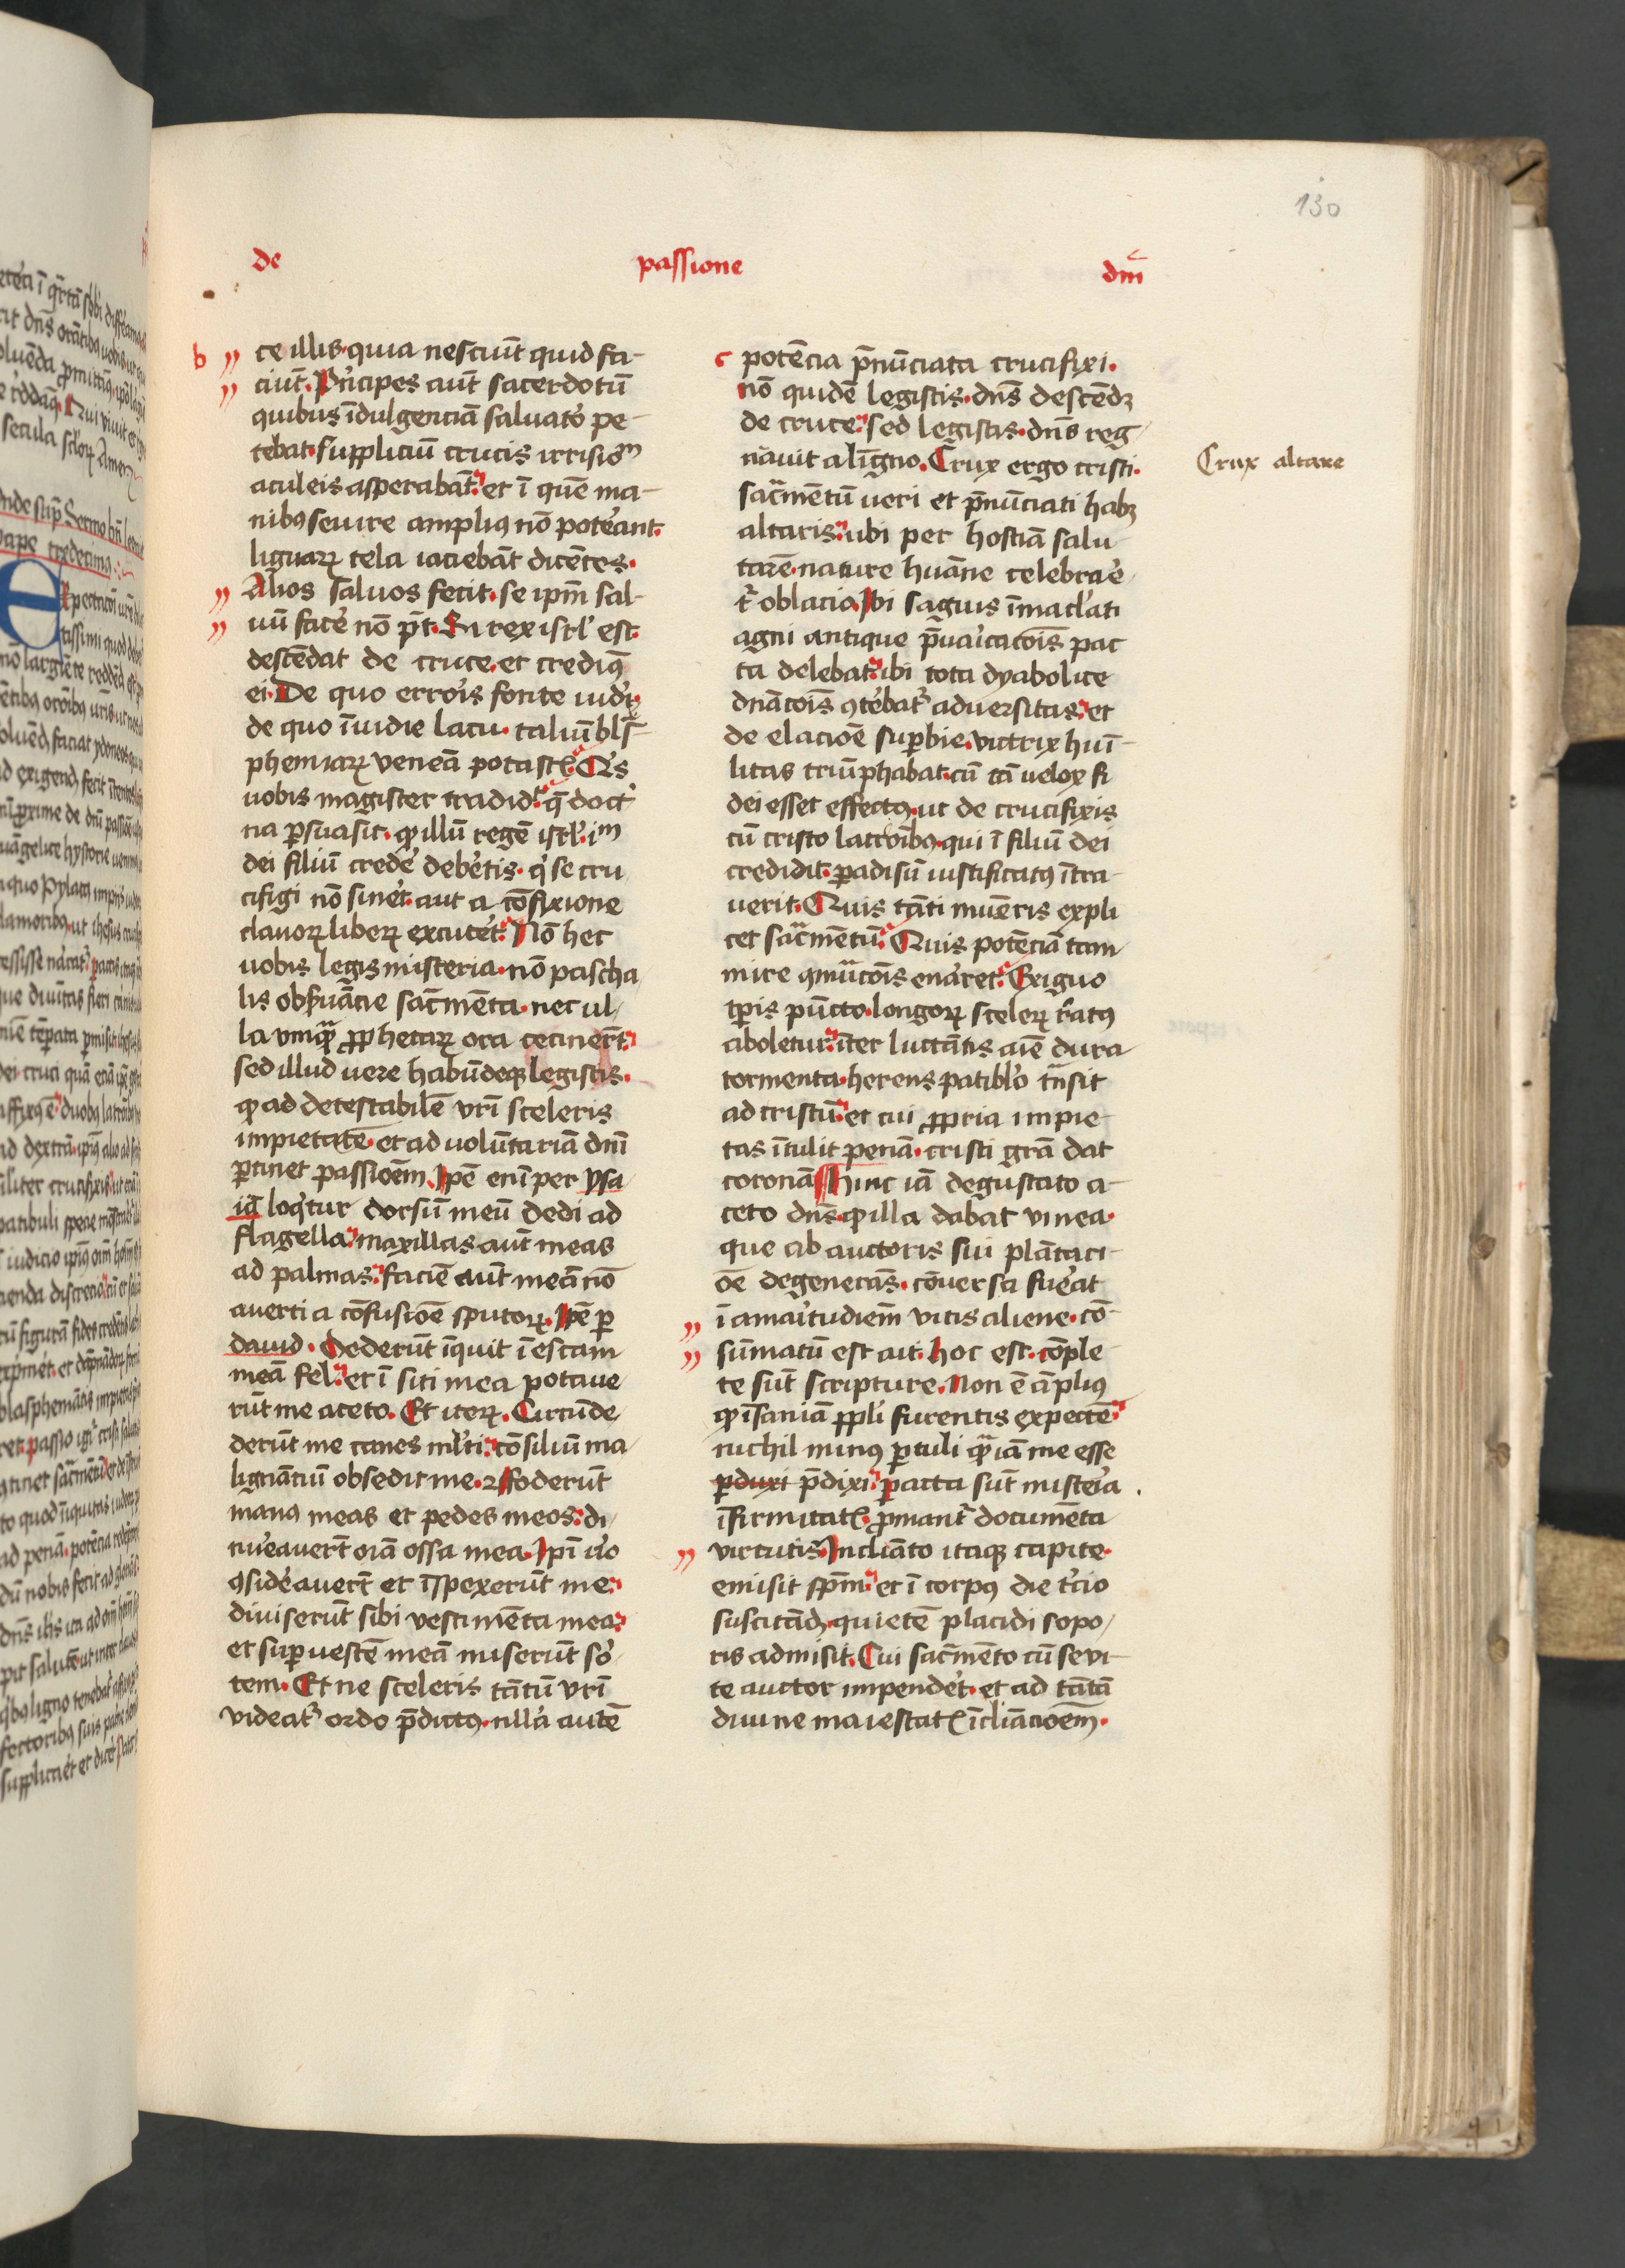 130
de passione dnī
b
ce illis· quia nesciūt quid fa-
ciūt. Pn̄cipes aūt sacerdotū
quibus īdulgenciā saluator pe-
tebat· suppliciū crucis irrisio᷑m
aculeis asperabāt· et ī quē ma-
nibꝰ seuire ampliꝰ nō poterant·
liguarꝝ tela iaciebāt dicētes·
Alios saluos fecit· se ipm̄ sal-
uū facē nō p̄t· Si rex isrl̓ est·
descēdat de cruce· et credimꝰ
ei· De quo erroris fonte iudei·
de quo īuidie lacu· taliū blas-
phemiarꝝ venenā potastis· Qͥs
uobis magister tradidit· q̄ doct
na ꝑsuasit· ꝙ illū regē isrl̓· im
dei filiū credē debetis· qͥ se cru
cifigi nō sineret· aut a cōfixione
clauorꝝ liberꝝ excuteret· Nō hec
uobis legis misteria· nō pascha
lis obẞuācie sac̄menta· nec ul-
la vmqᷓ ꝓphetarꝝ ora cecinert̄·
sed illud uere habūdeqꝫ legistis·
ꝙ ad detestabilē vr̄i sceleris
impietatē· et ad volūtariā dn̄i
ꝑtinet passionē. Ipē enī per ysa
iā loqͥtur dorsū meū dedi ad
flagella· maxillas aūt meas
ad palmas· faciē aūt meā nō
auerti a cōfusiōe sputorꝝ· Ipē ꝑ
dauid· Dederūt īquit ī escam
meā fel· et ī siti mea potaue
rūt me aceto. Et iterꝝ. Circūde
derūt me canes ml̓ti· cōsiliū ma
lignāciū obsedit me· ⁊ foderūt
manꝰ meas et pedes meos· di
nūeauert̄ oīa ossa mea. Ipī uͦo
ꝯsideauert̄ et īspexerūt me·
diuiserūt sibi vestimēta mea·
et suꝑ vestē meā miserūt sor
tem· Et ne sceleris tātū vr̄i
videatᷣ ordo p̄dictꝰ· nulla autē
c
potēcia p̄nūciata crucifixi·
nō quidē legistis· dn̄s descendꝫ
de cruce· sed legistis· dn̄s reg
nauit a lingno. Crux ergo cristi·
sac̄mentū ueri et p̄nūciati habꝫ
altaris· ubi per hostiā salu
tarē· nature huāne celebrare
tᷣ oblacio. Ibi saguis īmaclati
agni antique p̄uaricatōis pac
ta delebat· ibi tota dyabolice
dn̄atōis ꝯterebatᷣ aduersitas· et
de elaciōe suꝑbie· victrix humi-
litas triūphabat· cū tā uelox fi
dei esset effectꝰ· ut de crucifixis
cū cristo latronibꝰ· qui ī filiū dei
credidit· ꝑadisū iustificatꝰ ītra
uerit· Quis tāti muneris expli
cet sac̄mentū· Quis potēciā tam
mire ꝯmutatōis enarret· Exiguo
tꝑis pūcto· longorꝝ scelerꝝ reatꝰ
aboletur· īter luctātis aīe dura
tormenta· herens patiblo tn̄sit
ad cristū· et cui ꝓpria impie-
tas ītulit penā· cristi grā dat
coronā Hinc iā degustato a-
ceto dn̄s· ꝙ illa dabat vinea·
que ab auctoris sui plātaci-
ōe degenerās· cōuersa fuerat
ī amaritudinem vitis aliene· cō-
sūmatū est ait· hoc est· cōple
te sūt scripture. Non ē ampliꝰ
ꝙ īsaniā ppl̓i furentis expectē·
nichil minꝰ ꝑtuli qᷓ iā me esse
ꝑduxi p̄dixi· ꝑacta sūt misteria
īfirmitatis· ꝓmantᷣ documēta
virtutis· Incliato itaqꝫ capite·
emisit spm̄· et ī corpꝰ die tͨcio
suscitādꝫ· quietē placidi sopo
ris admisit. Cui sac̄mento cū seui-
te auctor impenderet· et ad tātā
diuine maiestatis īcliacionem·
Crux altare